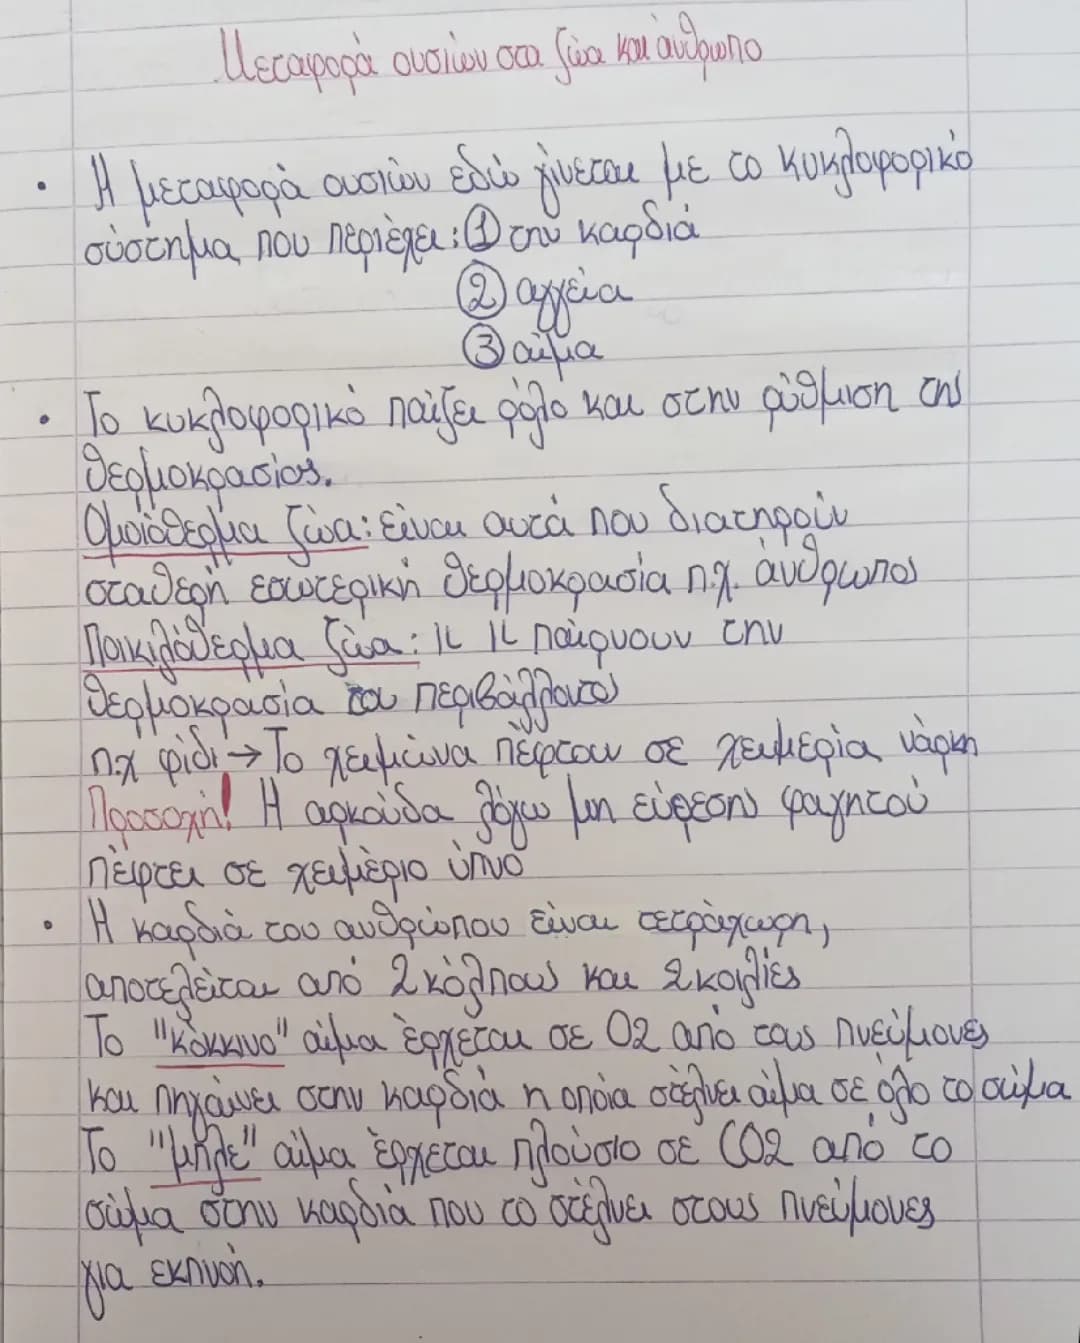 Μεταφορά ουσιών στα ζώα και άνθρωπο
• Η μεταφορά ουσιών εδώ γίνεται με το κυκλοφορικό
σύστημα που περιέχει: ① την καρδιά
② αγγεία
③ αίμα
• Το κυκλοφορικό παίζει ρόλο και στην ρύθμιση της
θερμοκρασίας.
Ομοιόθερμα ζώα: είναι αυτά που διατηρούν
σταθερή εσωτερική θερμοκρασία π.χ. άνθρωπος
Ποικιλόθερμα ζώα: 〃 〃 παίρνουν την
θερμοκρασία του περιβάλλοντος
π.χ φίδι → Το χειμώνα πέφτουν σε χειμερία νάρκη
Προσοχή! Η αρκούδα λόγω μη εύρεσης φαγητού
πέφτει σε χειμέριο ύπνο
• Η καρδιά του ανθρώπου είναι τετράχωρη,
αποτελείται από 2 κόλπους και 2 κοιλίες
Το "κόκκινο" αίμα έρχεται σε O2 από τους πνεύμονες
και πηγαίνει στην καρδιά η οποία στέλνει αίμα σε όλο το σώμα
Το "μπλε" αίμα έρχεται πλούσιο σε CO2 από το
σώμα στην καρδιά που το στέλνει στους πνεύμονες
για εκπνοή.